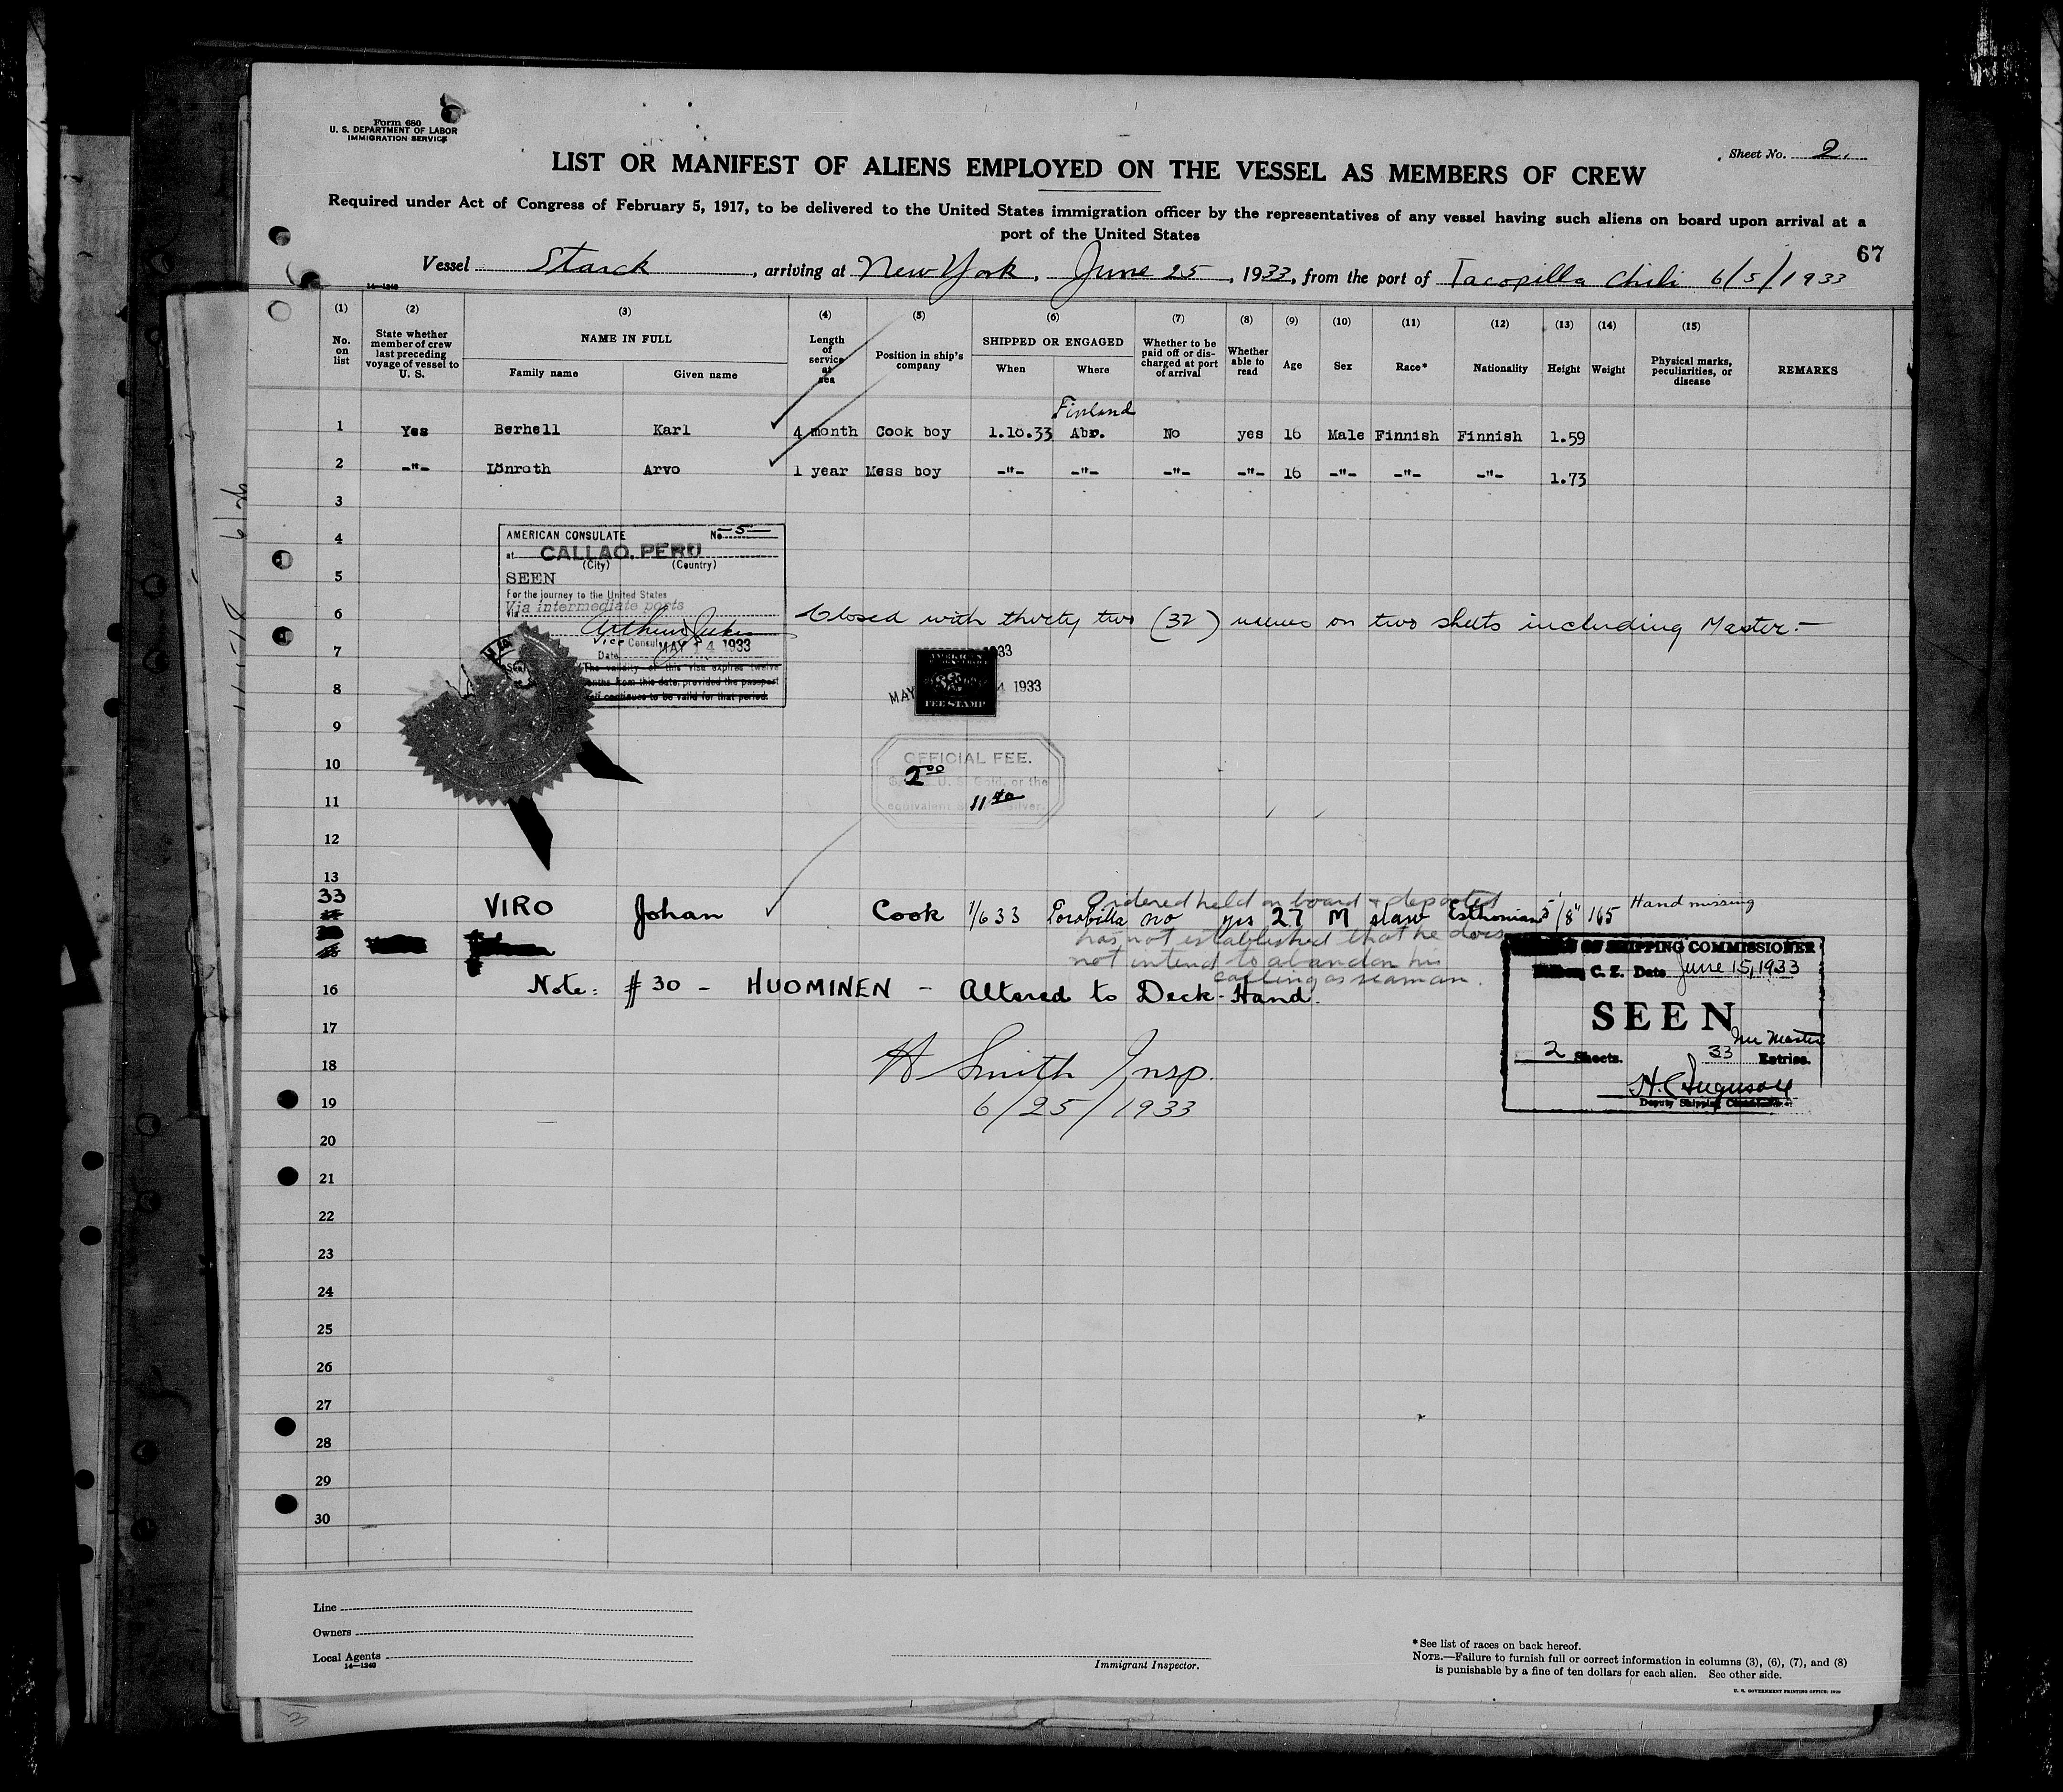 Form 680
U. S. DEPARTMENT OF LABOR
IMMIGRATION SERVICE
Sheet No. 2.
LIST OR MANIFEST OF ALIENS EMPLOYED ON THE VESSEL AS MEMBERS OF CREW
Required under Act of Congress of February 5, 1917, to be delivered to the United States immigration officer by the representatives of any vessel having such aliens on board upon arrival at a
port of the United States
67
Vessel Starck, arriving at New York, June 25, 1933, from the port of Tacopilla Chili 6/5/1933
14—1240
(1) (2) (3) (4) (5) (6) (7) (8) (9) (10) (11) (12) (13) (14) (15)
No. on list State whether member of crew last preceding voyage of vessel to U. S. NAME IN FULL Family name Given name Length of service at sea Position in ship's company SHIPPED OR ENGAGED When Where Whether to be paid off or discharged at port of arrival Whether able to read Age Sex Race* Nationality Height Weight Physical marks, peculiarities, or disease REMARKS
Finland
1 Yes Berhell Karl 4 month Cook boy 1.10.33 Abo. No yes 16 Male Finnish Finnish 1.59
2 -"- Lönroth Arvo 1 year Mess boy -"- -"- -"- -"- 16 -"- -"- -"- 1.73
3
4
AMERICAN CONSULATE No. 5
at CALLAO, PERU
(City) (Country)
5
SEEN
For the journey to the United States
Via intermediate ports
6
Closed with thirty two (32) names on two sheets including Master.—
Vice Consul
Date MAY 14 1933
The validity of this visa expires twelve
months from this date, provided the passport
itself continues to be valid for that period.
7
8
MAY 4 1933
FEE STAMP
9
10
OFFICIAL FEE.
2.00
U. S. Gold, or the
equivalent Silver.
11.40
11
12
13
33 VIRO Johan Cook 1/6 33 no yes 27 M slav Esthonian 5'/8" 165 Hand missing
Ordered held on board & deported
has not established that he does
not intend to abandon his
calling as seaman.
16 Note: #30 - HUOMINEN - Altered to Deck-Hand.
OF SHIPPING COMMISSIONER
C. Z. Date June 15, 1933
SEEN
Inc Master
2 Sheets. 33 Entries.
H. C. Ferguson
Deputy Shipping Commissioner
17
H Smith Insp.
18
6/25/1933
19
20
21
22
23
24
25
26
27
28
29
30
Line
Owners
Local Agents
14—1240
Immigrant Inspector.
*See list of races on back hereof.
NOTE.—Failure to furnish full or correct information in columns (3), (6), (7), and (8)
is punishable by a fine of ten dollars for each alien. See other side.
U. S. GOVERNMENT PRINTING OFFICE: